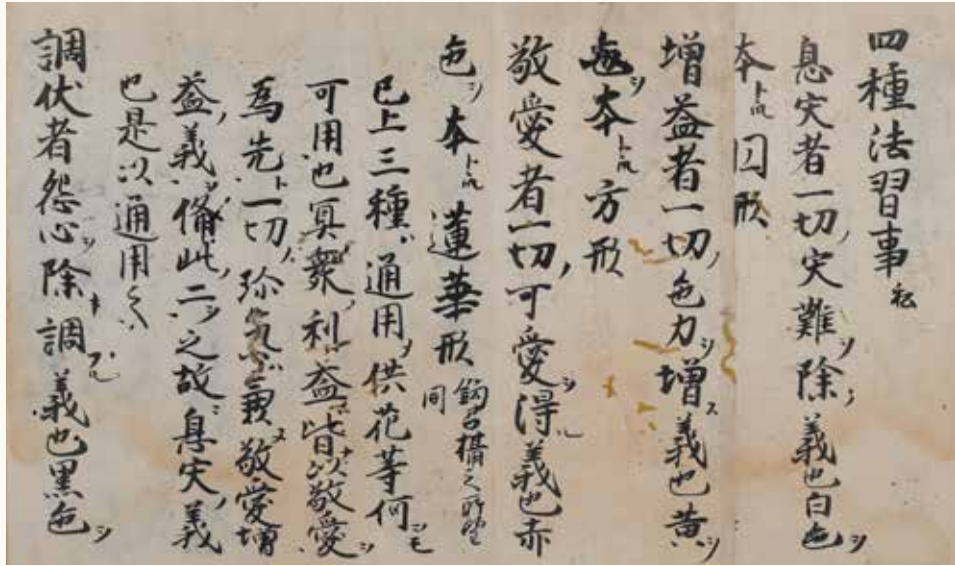 四種法習事 私
息災者一切ノ災難ヲ除ク義也白色ヲ
本トス円形
増益者一切ノ色力ヲ増ス義也黄ヲ
色ヲ本トス方形
敬愛者一切ノ可愛ヲ得ル義也赤
色ヲ本トス蓮華形 鈎召攝之所望同
已上三種ハ通用ノ供花等何ニモ
可用也冥衆ノ利益ハ皆以敬愛ヲ
為先ト一切ノ敬愛増
益ノ義ヲ備此ノ二ヲ之故ニ息災ノ義
也是以通用〻〻
調伏者怨心ヲ除キ調フル義也黒色ヲ